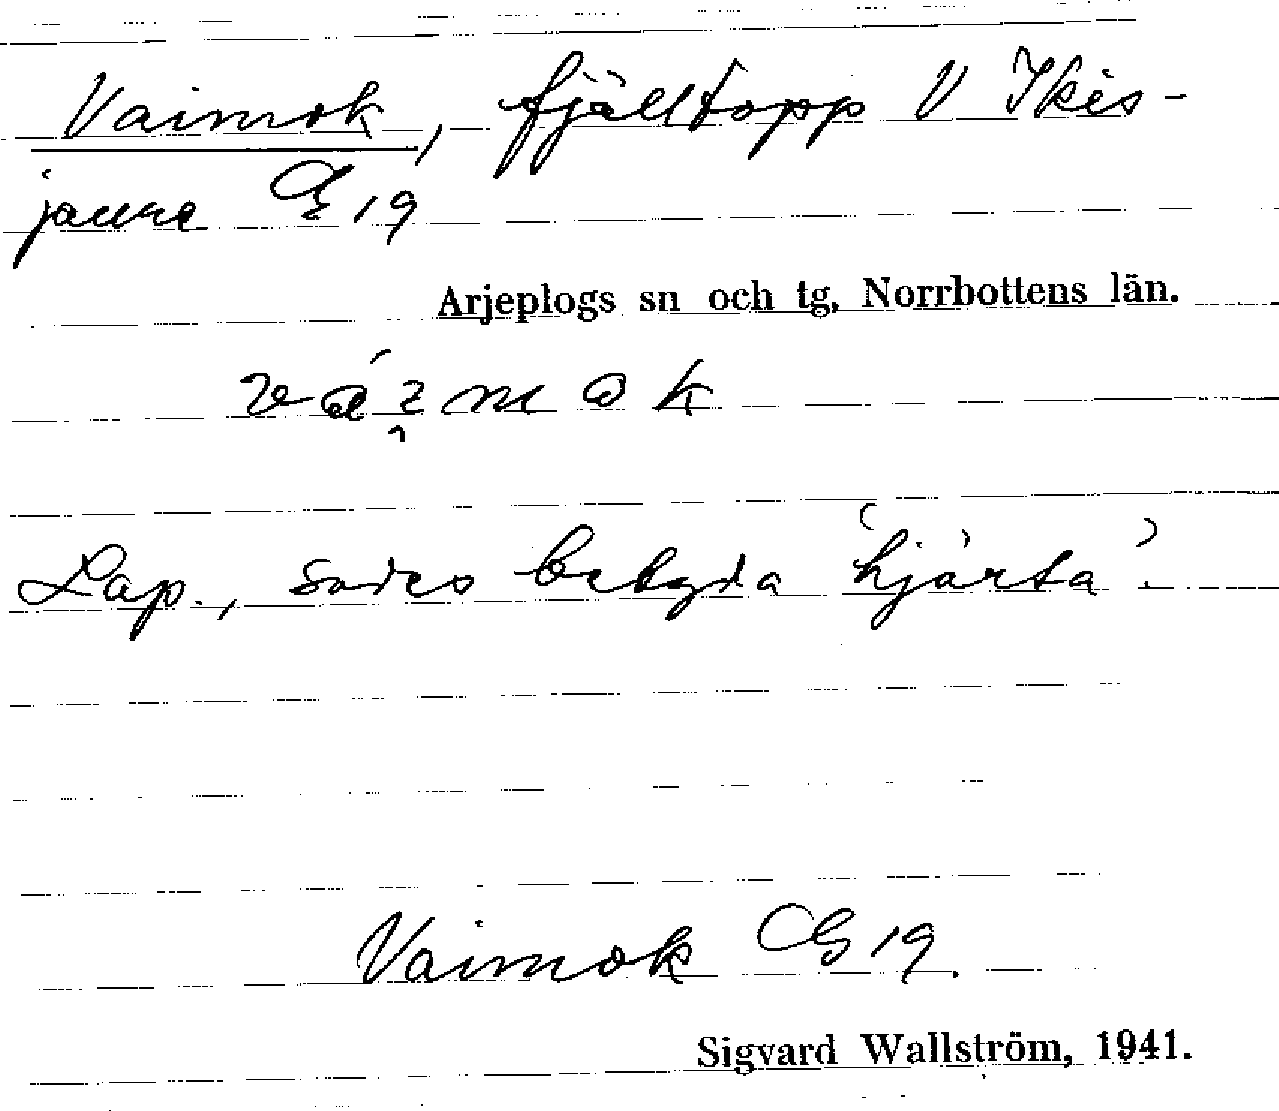 Vaimok, fjälltopp V Ikès-
jaure G 19
Arjeplogs sn och tg, Norrbottens län.
váɩ̯mɷk
Lap., sades betyda 'hjärta'.
Vaimok G 19.
Sigvard Wallström, 1941.